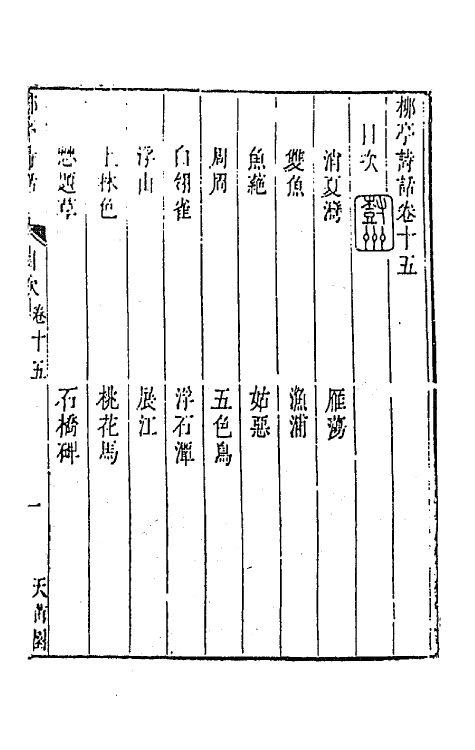 柳亭詩話卷十五
目次
消夏灣 雁蕩
雙魚 漁浦
魚絶 姑惡
周周 五色鳥
白翎雀 浮石潭
浮山 展江
上林色 桃花馬
愁題草 石橋碑
柳亭詩話 目次 卷十五 一 天茁園